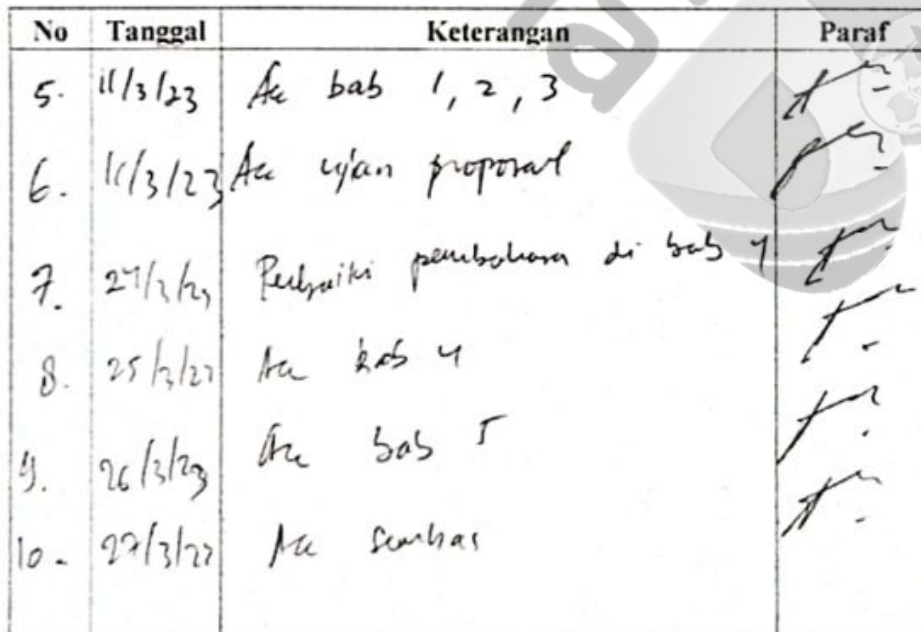 No Tanggal Keterangan Paraf
5. 11/3/23 Acc bab 1, 2, 3
6. 11/3/23 Acc ujian proposal
7. 24/3/23 Perbaiki pembahasan di bab 4
8. 25/3/23 Acc bab 4
9. 26/3/23 Acc bab 5
10. 27/3/23 Acc semhas